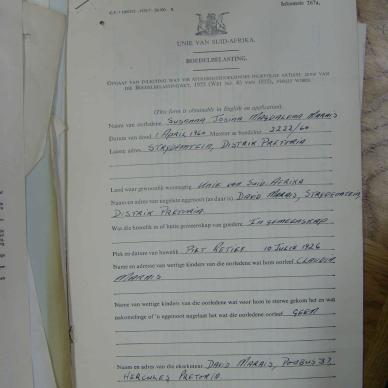 Inkomste 267a.
UNIE VAN SUID-AFRIKA.
BOEDELBELASTING.
OPGAAF VAN INLIGTING WAT VIR
ARTIKEL VAN
DIE BOEDELBELASTINGWET, 1955 (WET No. 45 VAN 1955), VEREIS WORD.
(This form is obtainable in English on application).
Naam van oorledene SUSANNA JOSINA MAGDALENA MARAIS
Datum van dood 1 APRIL 1960 Meester se boedelno. 2222/60
Laaste adres STRYDFONTEIN, DISTRIK PRETORIA
Land waar gewoonlik woonagtig UNIE VAN SUID AFRIKA
Naam en adres van nagelate eggenoot (as daar is) DAVID MARAIS, STRYDFONTEIN,
DISTRIK PRETORIA
Was die huwelik in of buite gemeenskap van goedere? IN GEMEENSKAP
Plek en datum van huwelik PIET RETIEF 10 JULIE 1926
Name en adresse van wettige kinders van die oorledene wat hom oorleef
MARAIS
Name van wettige kinders van die oorledene wat voor hom te sterwe gekom het en wat
nakomelinge of 'n eggenoot nagelaat het wat die oorledene oorleef GEEN
Naam en adres van die eksekuteur DAVID MARAIS, POSBUS 37,
HERCULES PRETORIA